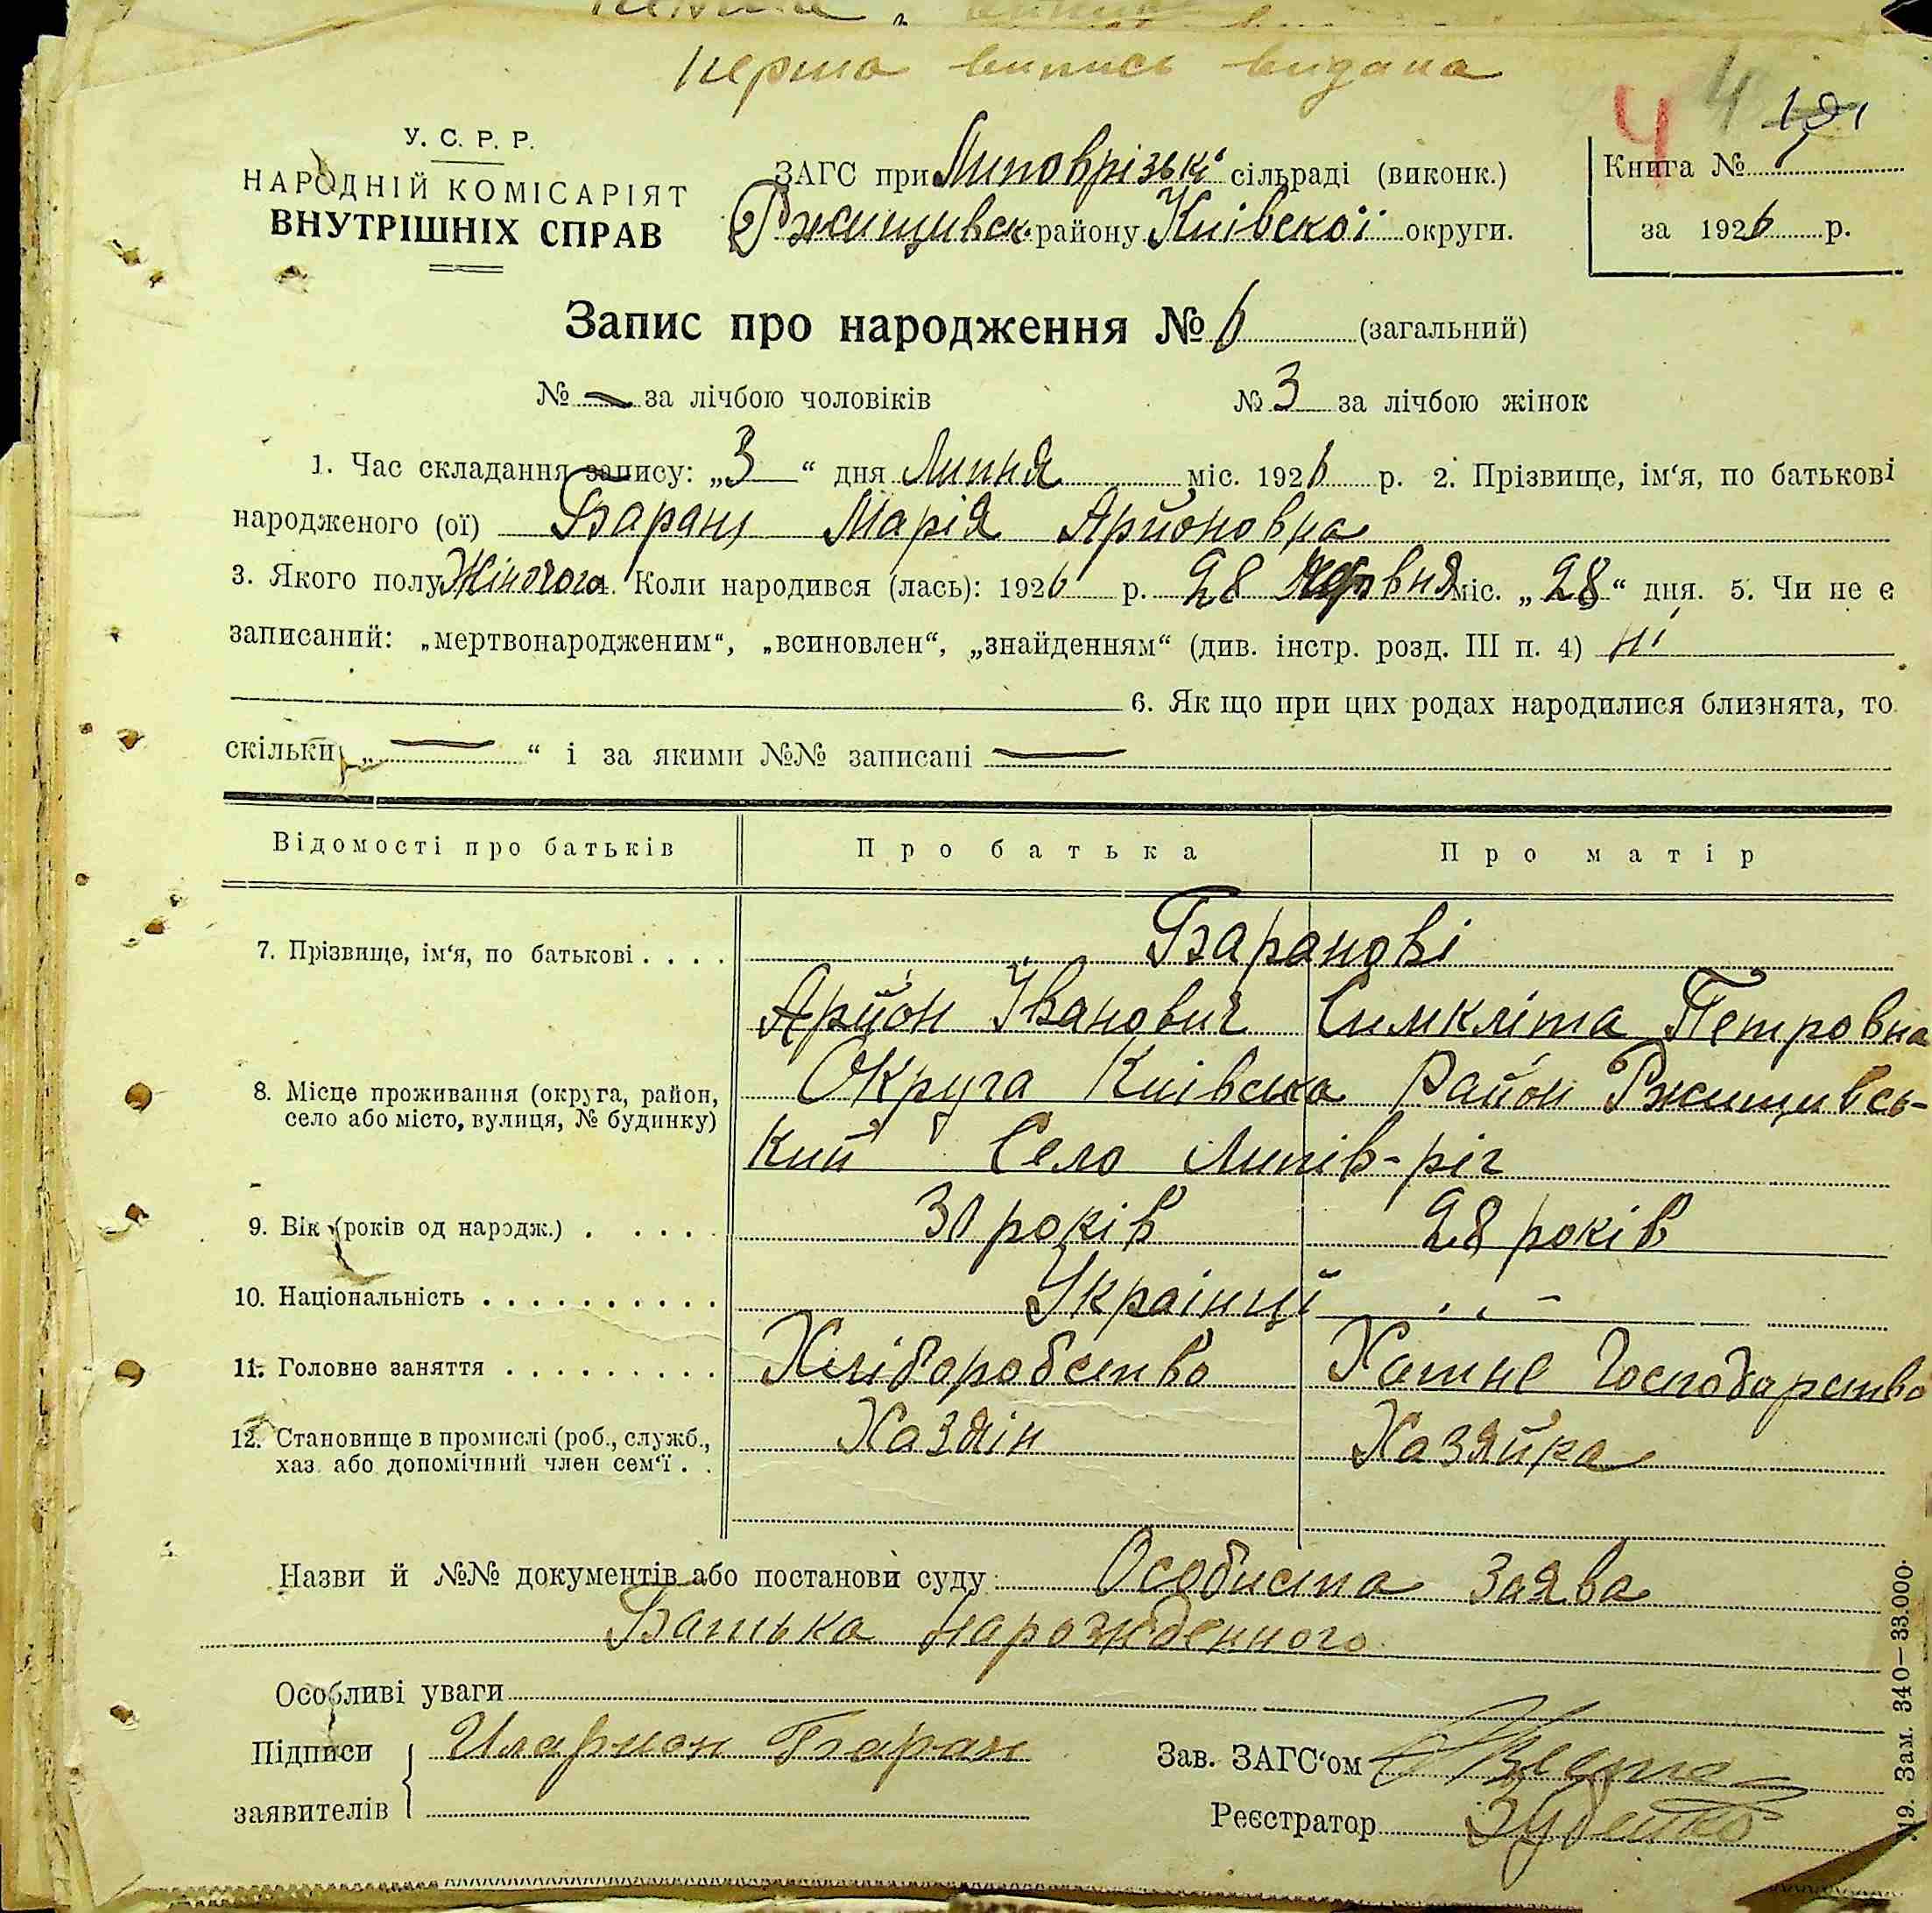 перша випись видана
4 4 191
У. С. Р. Р.
НАРОДНІЙ КОМІСАРІЯТ
ВНУТРІШНІХ СПРАВ
ЗАГС при Липоврізькі сільраді (виконк.)
Ржищивськ. району Київскої округи.
Книга №
за 1926 р.
Запис про народження № 6 (загальний)
№ — за лічбою чоловіків № 3 за лічбою жінок
1. Час складання запису: „3“ дня Липня міс. 1926 р. 2. Прізвище, ім‘я, по батькові
народженого (ої) Баран Марія Арийоновна
3. Якого полу Жіночого 4. Коли народився (лась): 1926 р. 28 Червня міс. „28“ дня. 5. Чи не є
записаний: „мертвонародженим“, „всиновлен“, „знайденням“ (див. інстр. розд. III п. 4) ні
6. Як що при цих родах народилися близнята, то
скільки „—“ і за якими №№ записані —
Відомості про батьків Про батька Про матір
7. Прізвище, ім‘я, по батькові . . . . Баранові
Арийон Іванович Симкліта Петровна
8. Місце проживання (округа, район, Округа Київска Район Ржищивсь-
село або місто, вулиця, № будинку)
кий Село Липів-ріг
9. Вік (років од народж.) . . . . . 31 років 28 років
10. Національність . . . . . . . . . . Українці . . –
11. Головне заняття . . . . . . . . . Хліборобство Хатнє Господарство
12. Становище в промислі (роб., служб., Хазяін Хазяйка
хаз. або допомічний член сем‘ї . .
Назви й №№ документів або постанови суду: Особиста Заява
Батька Нарожденного
Особливі уваги
Підписи Иларион Баран Зав. ЗАГС‘ом
заявителів Реєстратор
19. Зам. 340—33.000.